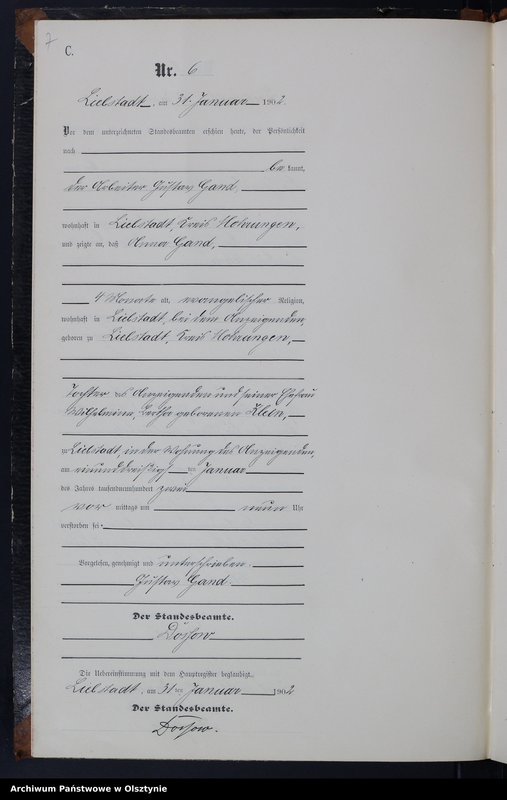 7
C.
Nr. 6
Liebstadt, am 31. Januar 1902.
Vor dem unterzeichneten Standesbeamten erschien heute, der Persönlichkeit
nach
be kannt,
der Arbeiter Gustav Gand,
wohnhaft in Liebstadt, Kreis Mohrungen,
und zeigte an, daß Anna Gand,
4 Monate alt, evangelischer Religion,
wohnhaft in Liebstadt, bei dem Anzeigenden,
geboren zu Liebstadt, Kreis Mohrungen,
Tochter des Anzeigenden und seiner Ehefrau
Wilhelmine, Bertha geborenen Klein,
zu Liebstadt, in der Wohnung des Anzeigenden,
am einunddreißigsten Januar
des Jahres tausendneunhundert zwei
vor mittags um neun Uhr
verstorben sei.
Vorgelesen, genehmigt und unterschrieben.
Gustav Gand.
Der Standesbeamte.
Die Uebereinstimmung mit dem Hauptregister beglaubigt.
Liebstadt, am 31ten Januar 1902
Der Standesbeamte.
Archiwum Państwowe w Olsztynie